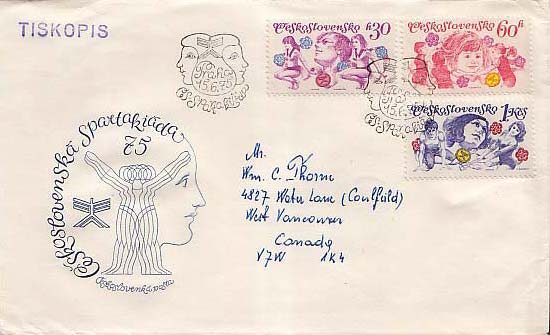 TISKOPIS
Československo h30
Československo 60h
Československo 1 Kčs
Praha
15.6.75
ČS SPARTAKIÁDA
Československá Spartakiáda
75
Československá pošta
Mr.
Wm. C. Thorne
4827 Water Lane (Caulfuld)
West Vancouver
Canady
V7W 1K4